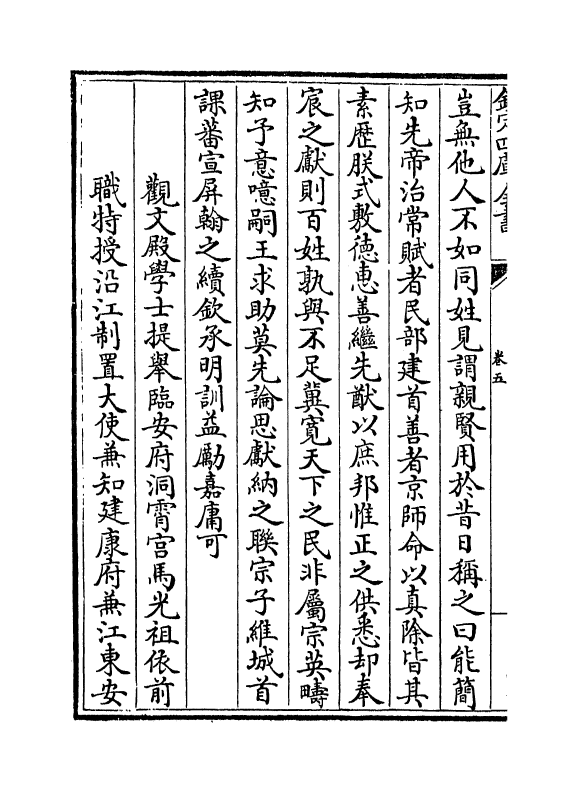 欽定四庫全書
卷五
豈無他人不如同姓見謂親賢用於昔日稱之曰能簡
知先帝治常賦者民部建首善者京師命以真除皆其
素歷朕式敷德惠善繼先猷以庶邦惟正之供悉却奉
宸之獻則百姓孰與不足冀寛天下之民非屬宗英疇
知予意噫嗣王求助莫先論思獻納之聨宗子維城首
課蕃宣屏翰之績欽承明訓益勵嘉庸可
觀文殿學士提舉臨安府洞霄宫馬光祖依前
職特授沿江制置大使兼知建康府兼江東安